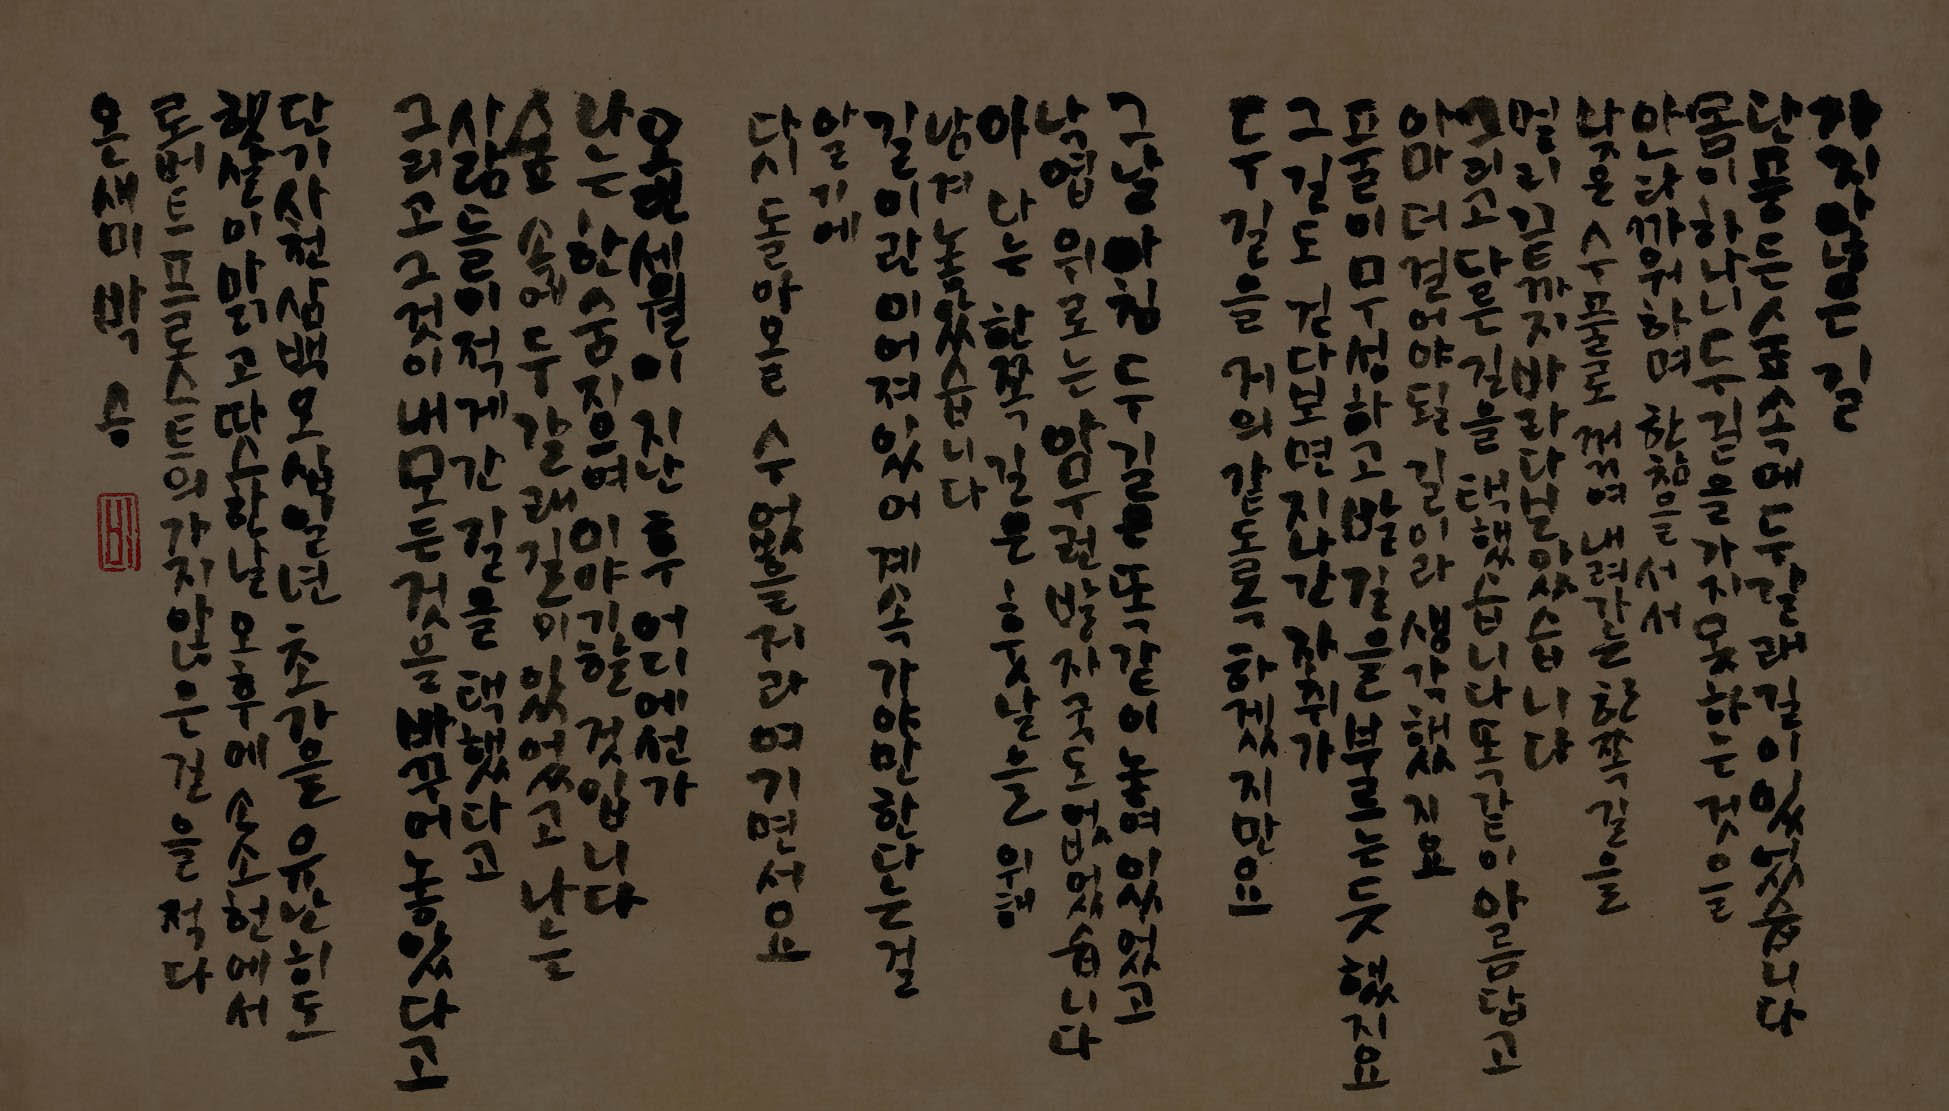 가지 않은 길
단풍든 숲속에 두갈래 길이 있었습니다
몸이 하나니 두길을 가지 못하는 것을
안타까워하며 한참을 서서
낮은 수풀로 꺾여 내려가는 한쪽길을
멀리 끝까지 바라다보았습니다
그리고 다른 길을 택했습니다 똑같이 아름답고
아마 더 걸어야 될 길이라 생각했지요
풀이 무성하고 발길을 부르는듯 했지요
그 길도 걷다보면 지나간 자취가
두 길을 거의 같도록 하겠지만요
그날 아침 두 길은 똑같이 놓여 있었고
낙엽 위로는 아무런 발자국도 없었습니다
아 나는 한쪽 길은 훗날을 위해
남겨놓았습니다
길이란 이어져 있어 계속 가야만 한다는 걸
알기에
다시 돌아올 수 없을 거라 여기면서요
오랜 세월이 지난 후 어디에선가
나는 한숨지으며 이야기할 것입니다
숲 속에 두 갈래 길이 있었고 나는
사람들이 적게 간 길을 택했다고
그리고 그것이 내 모든 것을 바꾸어 놓았다고
단기 사천삼백오십일년 초가을 유난히도
햇살이 맑고 따스한날 오후에 소소헌에서
로버트 프로스트의 가지 않은 길을 적다
온새미 박 승